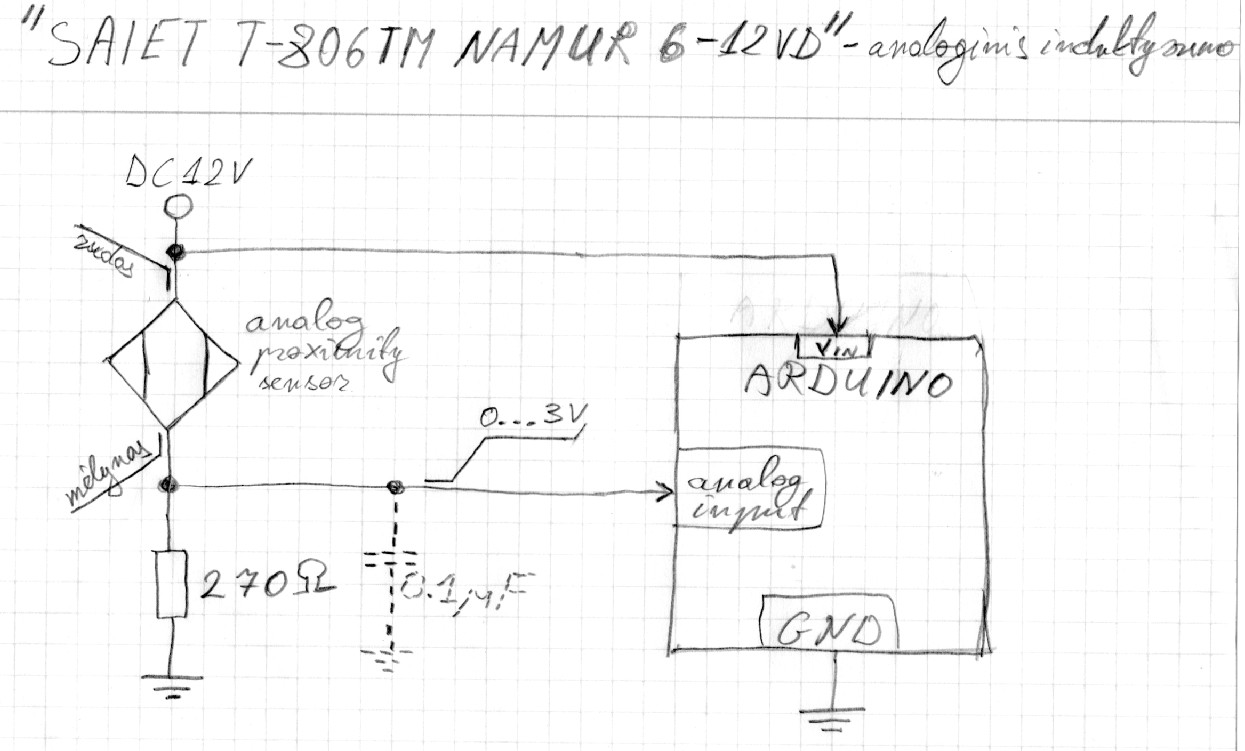 "SAIET T-806TM NAMUR 6-12VD"- analoginis
DC 12V
rudas
analog
proximity
sensor
VIN
ARDUINO
0...3V
mėlynas
analog
input
270Ω
0.1µF
GND